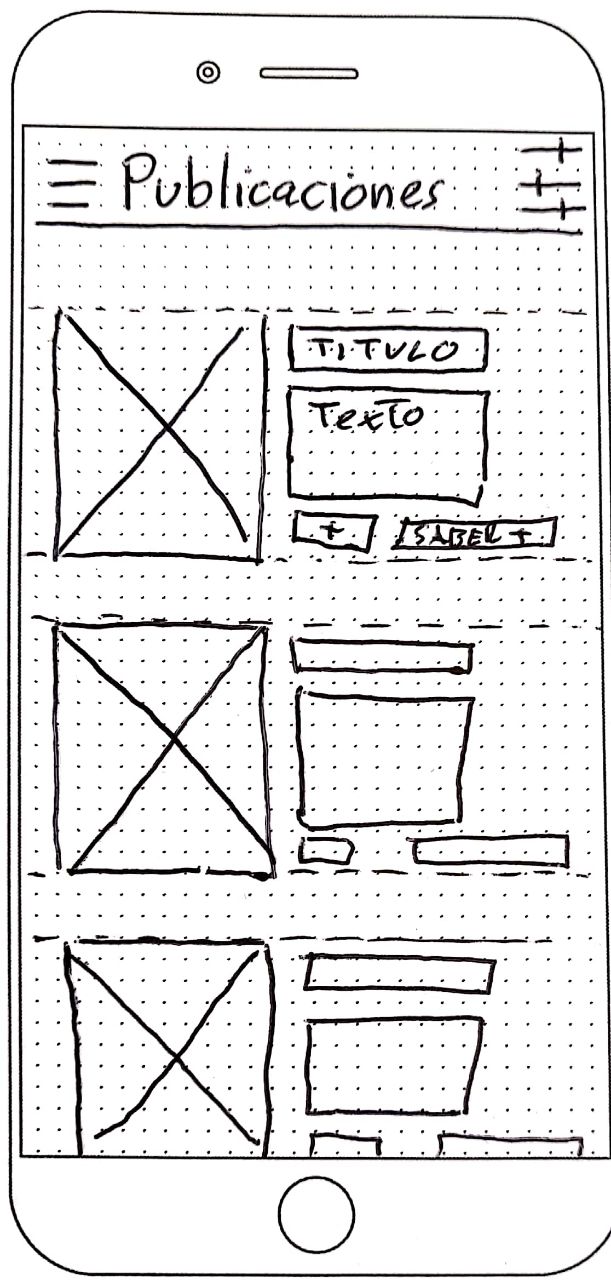 Publicaciones
TITULO
TexTo
+ SABER +